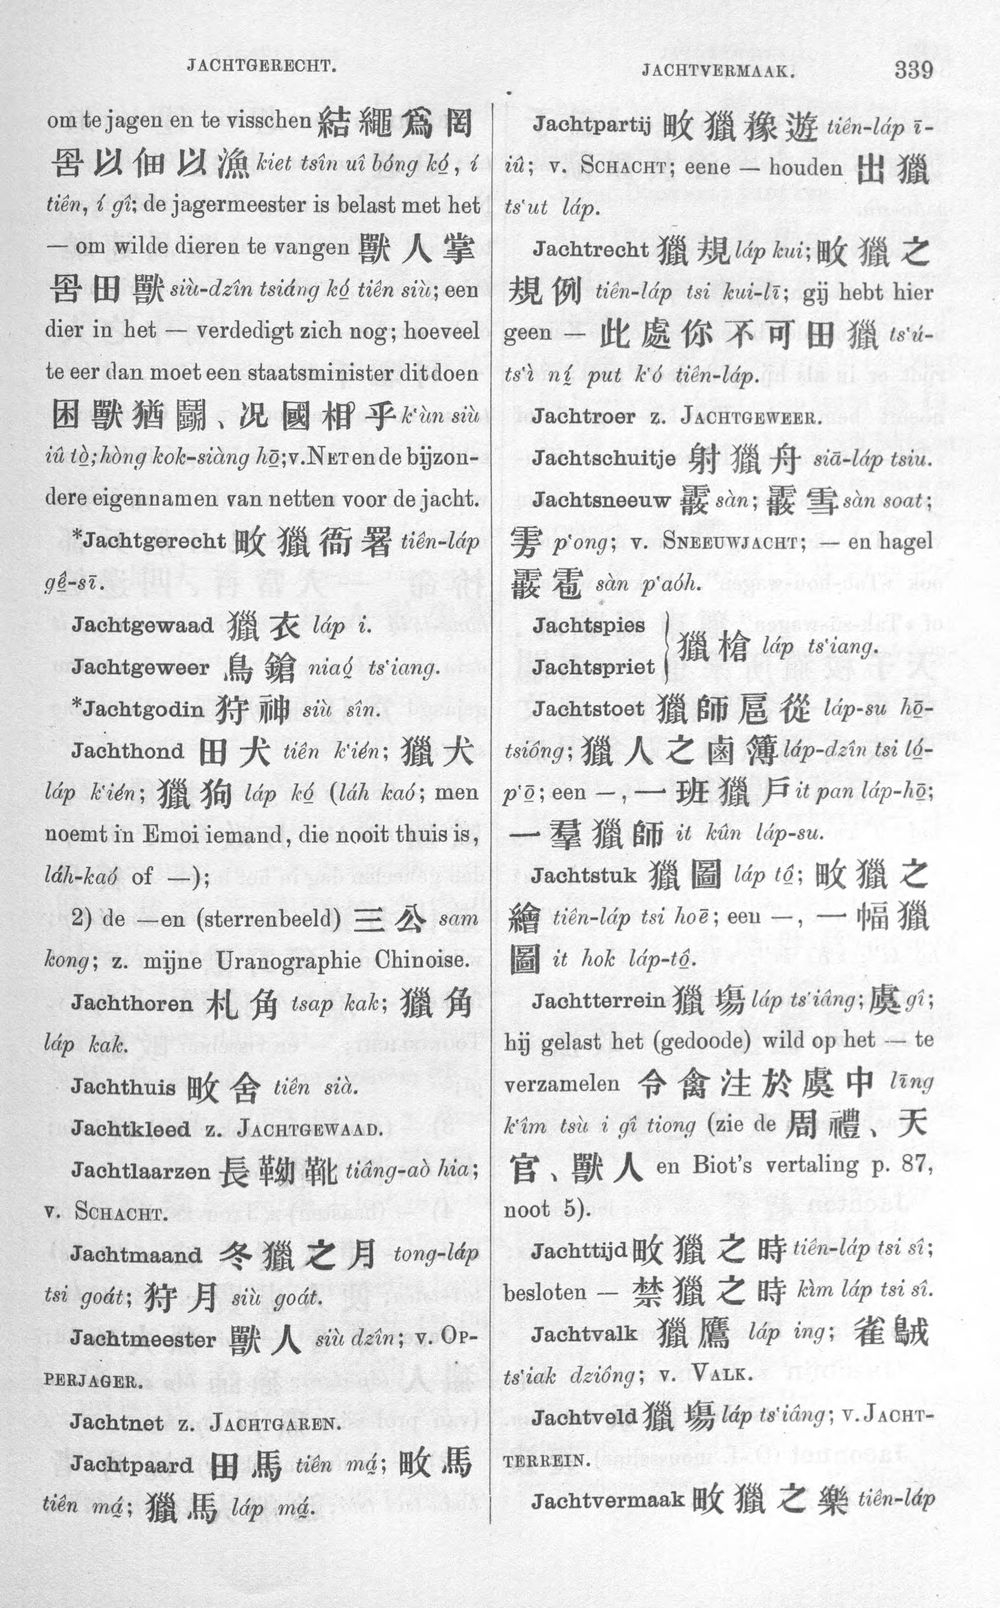 JACHTGERECHT.
JACHTVERMAAK.
339
om te jagen en te visschen 結繩爲罔
罟以佃以漁 kiet tsîn uî bóng kó̤, í
tiên, í gî; de jagermeester is belast met het
— om wilde dieren te vangen 獸人掌
罟田獸 siù-dzîn tsiáng kó̤ tiên siù; een
dier in het — verdedigt zich nog; hoeveel
te eer dan moet een staatsminister dit doen
困獸猶鬭、况國相乎 k‘ùn siù
iû tò̤; hòng kok-siàng hō̤; v. NET en de bijzon-
dere eigennamen van netten voor de jacht.
*Jachtgerecht 畋獵衙署 tiên-láp
gê̤-sī.
Jachtgewaad 獵衣 láp i.
Jachtgeweer 鳥鎗 niaó̤ ts‘iang.
*Jachtgodin 狩神 siù sîn.
Jachthond 田犬 tiên k‘ién; 獵犬
láp k‘ién; 獵狗 láp kó̤ (láh kaó; men
noemt in Emoi iemand, die nooit thuis is,
láh-kaó of —);
2) de —en (sterrenbeeld) 三公 sam
kong; z. mijne Uranographie Chinoise.
Jachthoren 札角 tsap kak; 獵角
láp kak.
Jachthuis 畋舍 tiên sià.
Jachtkleed z. JACHTGEWAAD.
Jachtlaarzen 長靿靴 tiâng-aò hia;
v. SCHACHT.
Jachtmaand 冬獵之月 tong-láp
tsi goát; 狩月 siù goát.
Jachtmeester 獸人 siù dzîn; v. OP-
PERJAGER.
Jachtnet z. JACHTGAREN.
Jachtpaard 田馬 tiên má̤; 畋馬
tiên má̤; 獵馬 láp má̤.
Jachtpartij 畋獵豫遊 tiên-láp ī-
iû; v. SCHACHT; eene — houden 出獵
ts‘ut láp.
Jachtrecht 獵規 láp kui; 畋獵之
規例 tiên-láp tsi kui-lī; gij hebt hier
geen — 此處你不可田獵 ts‘ú-
ts‘ì ní̤ put k‘ó tiên-láp.
Jachtroer z. JACHTGEWEER.
Jachtschuitje 射獵舟 siā-láp tsiu.
Jachtsneeuw 霰 sàn; 霰雪 sàn soat;
雱 p‘ong; v. SNEEUWJACHT; — en hagel
霰雹 sàn p‘aóh.
Jachtspies
Jachtspriet } 獵槍 láp ts‘iang.
Jachtstoet 獵師扈從 láp-su hō̤-
tsiông; 獵人之鹵簿 láp-dzîn tsi ló̤-
p‘ō̤; een —, 一班獵戶 it pan láp-hō̤;
一羣獵師 it kûn láp-su.
Jachtstuk 獵圖 láp tô̤; 畋獵之
繪 tiên-láp tsi hoē; een —, 一幅獵
圖 it hok láp-tô̤.
Jachtterrein 獵塲 láp ts‘iâng; 虞 gî;
hij gelast het (gedoode) wild op het — te
verzamelen 令禽注於虞中 līng
k‘îm tsù i gî tiong (zie de 周禮、天
官、獸人 en Biot's vertaling p. 87,
noot 5).
Jachttijd 畋獵之時 tiên-láp tsi sî;
besloten — 禁獵之時 kìm láp tsi sî.
Jachtvalk 獵鷹 láp ing; 雀鷻
ts‘iak dziông; v. VALK.
Jachtveld 獵塲 láp ts‘iâng; v. JACHT-
TERREIN.
Jachtvermaak 畋獵之樂 tiên-láp